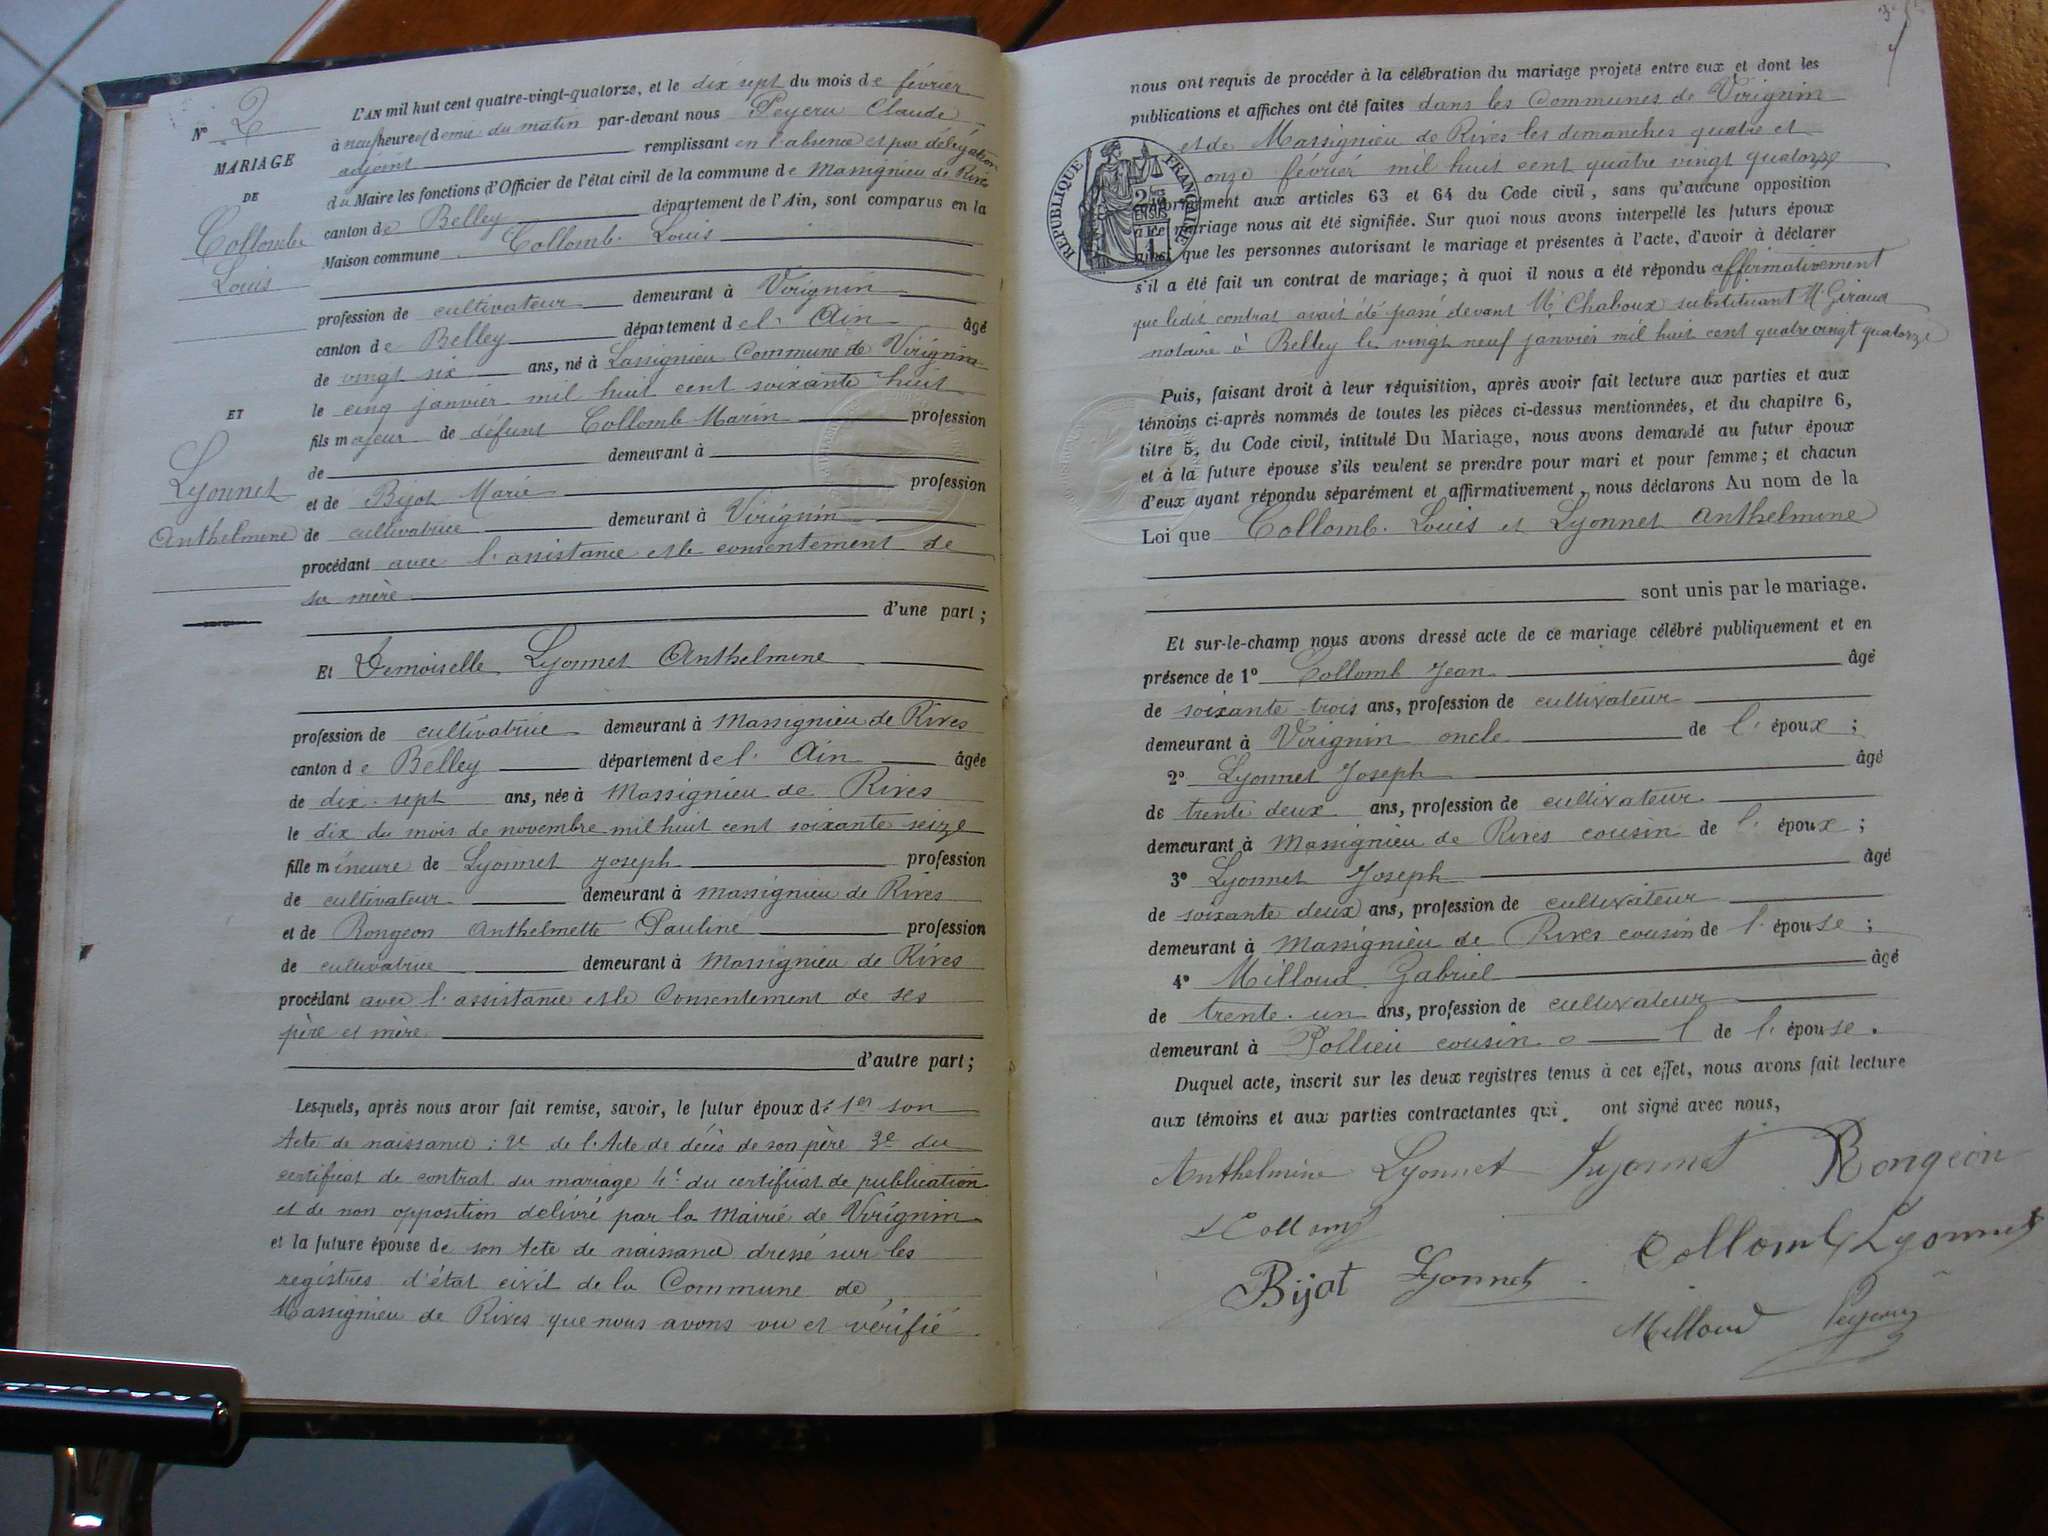 N° 2
MARIAGE
DE
Collomb
Louis
ET
Lyonnet
Anthelmine
L'AN mil huit cent quatre-vingt-quatorze, et le dix sept du mois de février
à neuf heures et demie du matin par-devant nous Peyeru Claude
adjoint remplissant en l'absence et par délégation
du Maire les fonctions d'Officier de l'état civil de la commune de Massignieu de Rives
canton de Belley département de l'Ain, sont comparus en la
Maison commune Collomb Louis
profession de cultivateur demeurant à Virignin
canton de Belley département de l'Ain âgé
de vingt six ans, né à Lassignieu Commune de Virignin
le cinq janvier mil huit cent soixante huit
fils majeur de défunt Collomb Marin profession
de demeurant à
et de Bijot Marie profession
de cultivatrice demeurant à Virignin
procédant avec l'assistance et le consentement de
sa mère
d'une part ;
Et Demoiselle Lyonnet Anthelmine
profession de cultivatrice demeurant à Massignieu de Rives
canton de Belley département de l'Ain âgée
de dix-sept ans, née à Massignieu de Rives
le dix du mois de novembre mil huit cent soixante seize
fille mineure de Lyonnet Joseph profession
de cultivateur demeurant à Massignieu de Rives
et de Rongeon Anthelmette Pauline profession
de cultivatrice demeurant à Massignieu de Rives
procédant avec l'assistance et le Consentement de ses
père et mère
d'autre part ;
Lesquels, après nous avoir fait remise, savoir, le futur époux de 1er son
Acte de naissance : 2e de l'Acte de décès de son père 3e du
certificat de contrat du mariage 4e du certificat de publication
et de non opposition délivré par la Mairie de Virignin
et la future épouse de son Acte de naissance dressé sur les
registres d'état civil de la Commune de
Massignieu de Rives que nous avons vu et vérifié
nous ont requis de procéder à la célébration du mariage projeté entre eux et dont les
publications et affiches ont été faites dans les Communes de Virignin
et de Massignieu de Rives les dimanches quatre et
onze février mil huit cent quatre vingt quatorze
REPUBLIQUE FRANÇAISE
conformément aux articles 63 et 64 du Code civil, sans qu'aucune opposition
à ce mariage nous ait été signifiée. Sur quoi nous avons interpellé les futurs époux
ainsi que les personnes autorisant le mariage et présentes à l'acte, d'avoir à déclarer
s'il a été fait un contrat de mariage ; à quoi il nous a été répondu affirmativement
que ledit contrat avait été passé devant Me Chaboux substituant Me Giraud
notaire à Belley le vingt neuf janvier mil huit cent quatre vingt quatorze
Puis, faisant droit à leur réquisition, après avoir fait lecture aux parties et aux
témoins ci-après nommés de toutes les pièces ci-dessus mentionnées, et du chapitre 6,
titre 5, du Code civil, intitulé Du Mariage, nous avons demandé au futur époux
et à la future épouse s'ils veulent se prendre pour mari et pour femme ; et chacun
d'eux ayant répondu séparément et affirmativement, nous déclarons Au nom de la
Loi que Collomb Louis et Lyonnet Anthelmine
sont unis par le mariage.
Et sur-le-champ nous avons dressé acte de ce mariage célébré publiquement et en
présence de 1° Collomb Jean âgé
de soixante trois ans, profession de cultivateur
demeurant à Virignin oncle de l'époux ;
2° Lyonnet Joseph âgé
de trente deux ans, profession de cultivateur
demeurant à Massignieu de Rives cousin de l'époux ;
3° Lyonnet Joseph âgé
de soixante deux ans, profession de cultivateur
demeurant à Massignieu de Rives cousin de l'épouse ;
4° Milloud Gabriel âgé
de trente-un ans, profession de cultivateur
demeurant à Pollieu cousin de l'épouse.
Duquel acte, inscrit sur les deux registres tenus à cet effet, nous avons fait lecture
aux témoins et aux parties contractantes qui ont signé avec nous,
Anthelmine Lyonnet Lyonnet Rongeon
Collomb
Collomb Lyonnet
Bijot Lyonnet
Milloud Peyeru